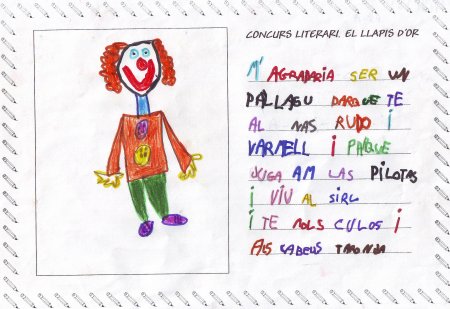 CONCURS LITERARI. EL LLAPIS D'OR
M' AGRADARIA SER UN
PALLAGU PARQUE TE
AL NAS RUDO I
VARMELL I PARQUE
JUGA AM LAS PILOTAS
I VIU AL SIRC
I TE MOLS CULOS I
ALS CABEUS TARONJA